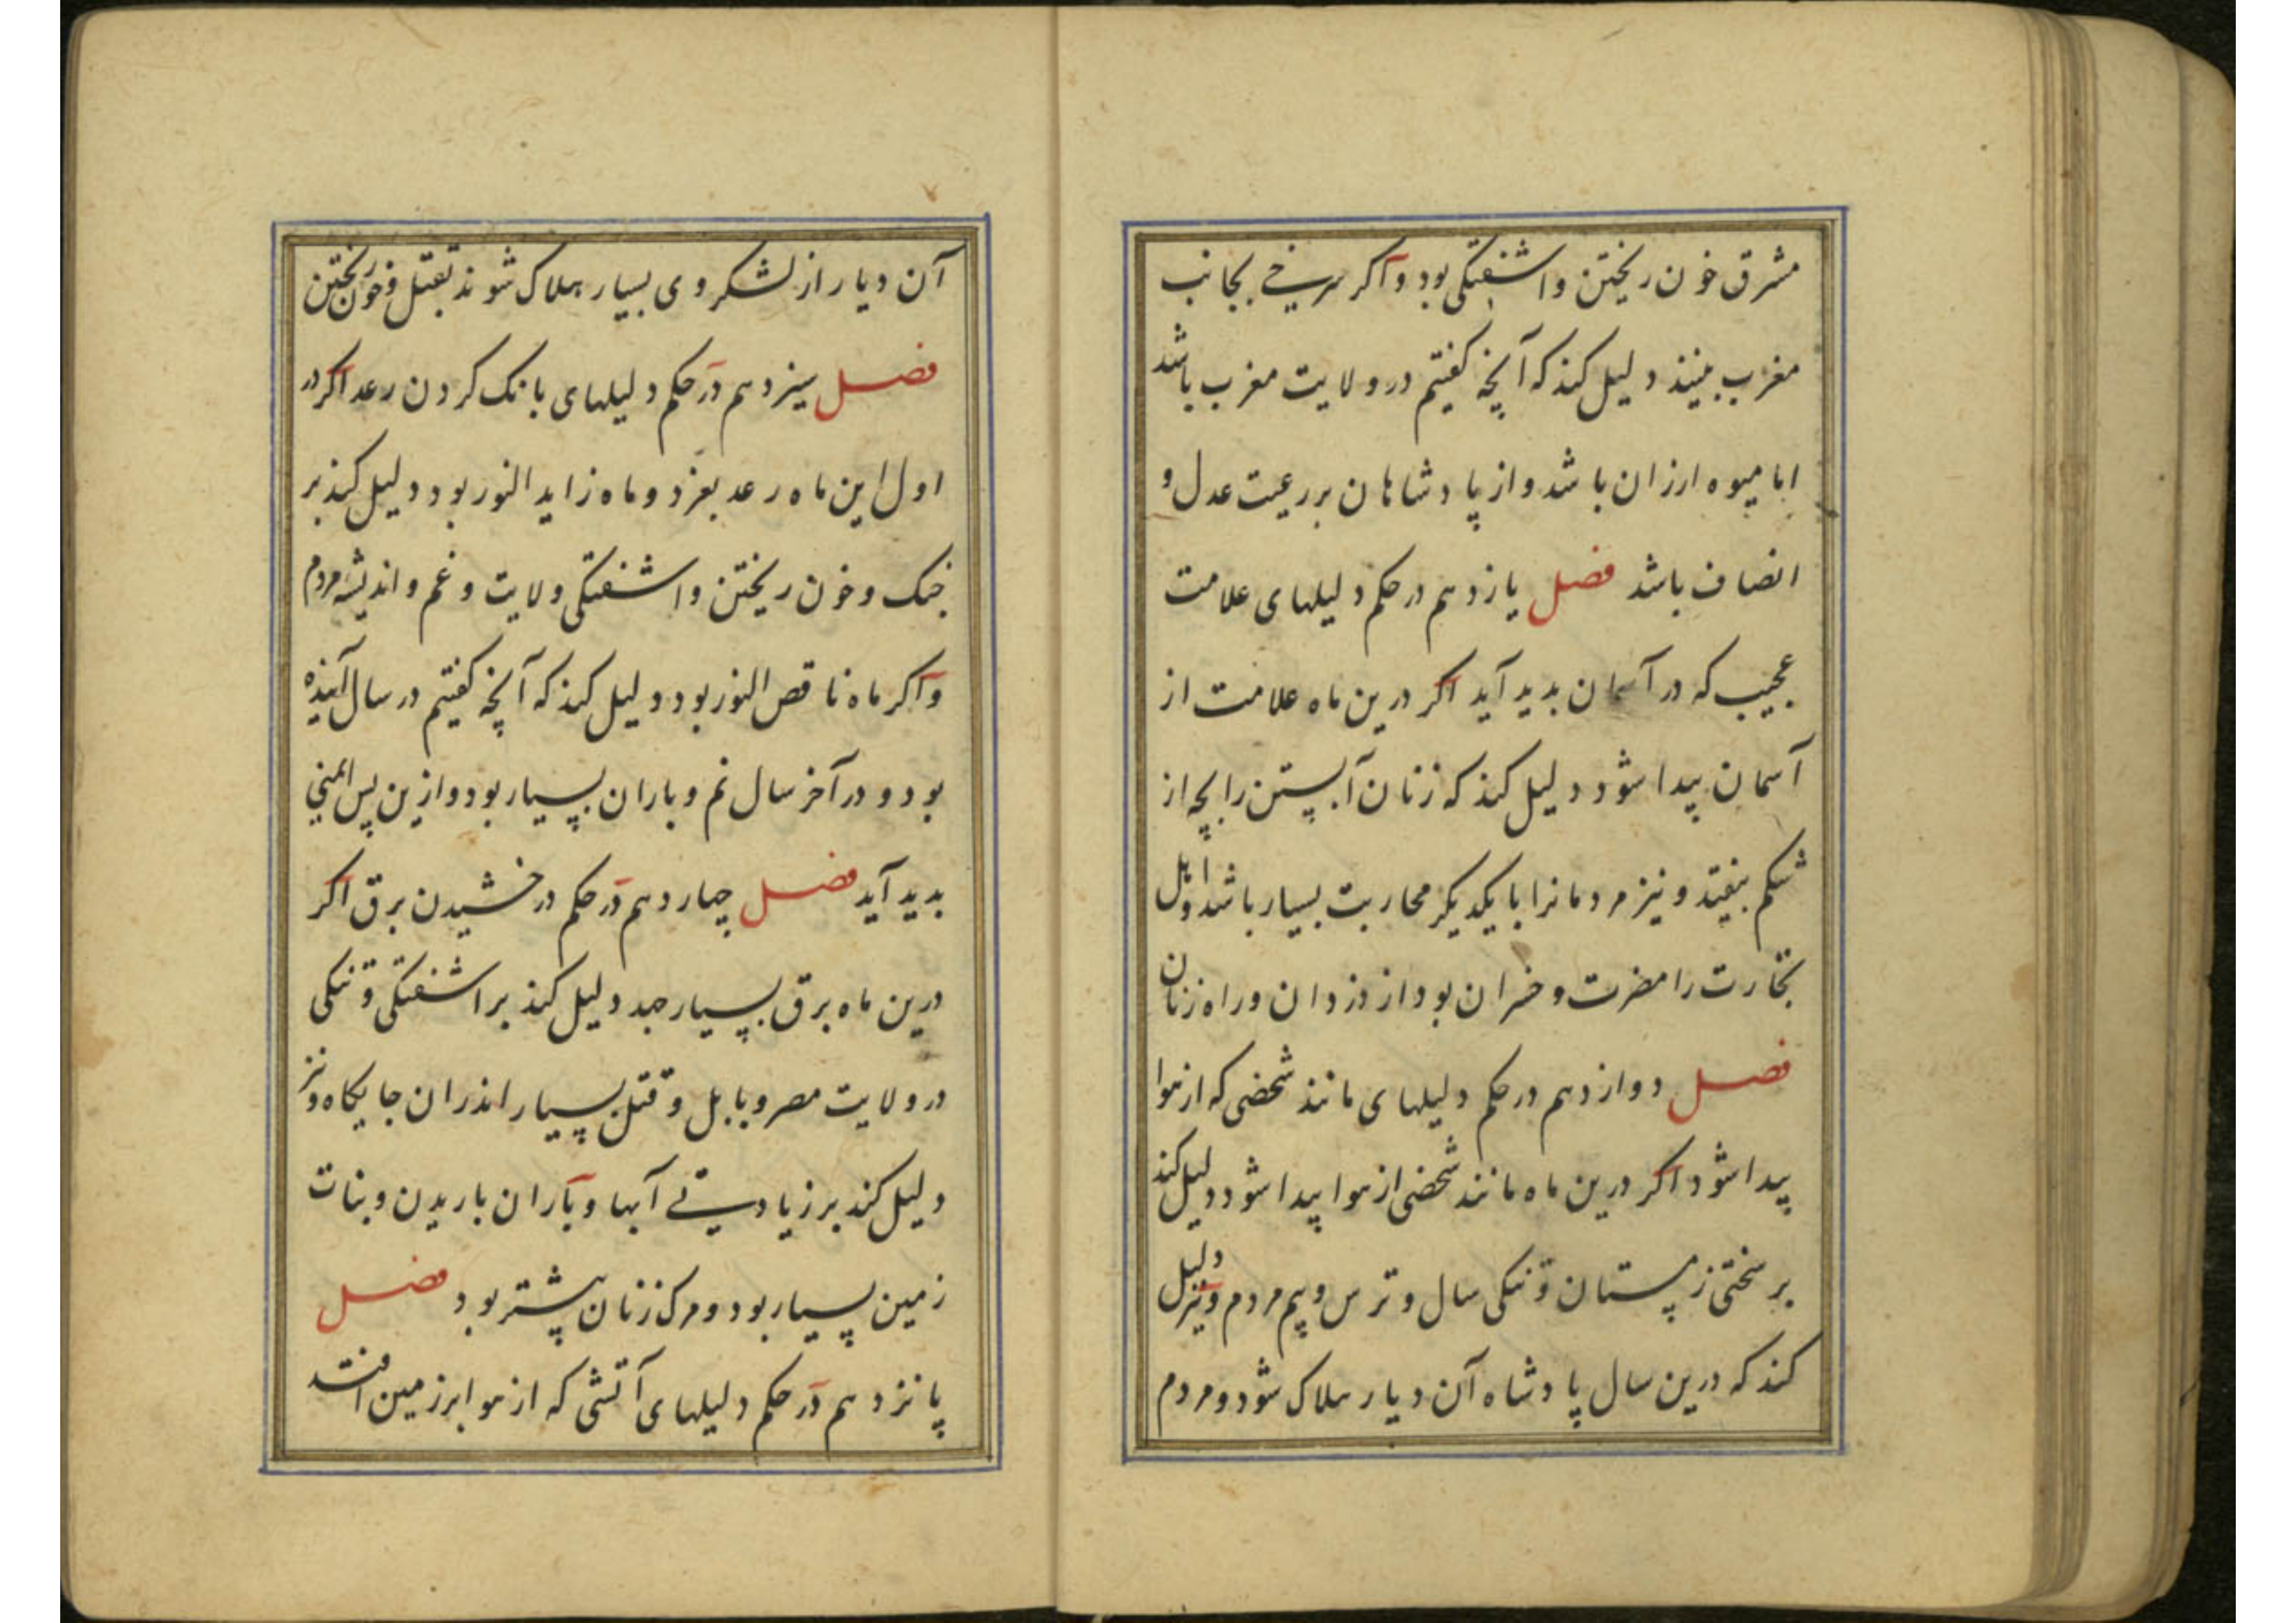 مشرق خون ریختن واشفتکی بود واکر سرخی بجانب
مغرب بینند دلیل کند که آنچه کفتیم درولایت مغرب باشد
اما میوه ارزان باشد واز پادشاهان بررعیت عدل و
انصاف باشد فصل یازدهم درحکم دلیلهای علامت
عجیب که در آسمان بدید آید اکر درین ماه علامت از
آسمان پیدا شود دلیل کند که زنان آبستن را بچه از
شکم بیفتد و نیز مردمانرا با یکدیکر محاربت بسیار باشد واهل
تجارت را مضرت و خسران بود از دزدان وراه زنان
فصل دوازدهم درحکم دلیلهای مانند شخصی که از هوا
پیدا شود اکر درین ماه مانند شخصی از هوا پیدا شود دلیل کند
بر سختی زمستان وتنکی سال وترس وبیم مردم ونیز دلیل
کند که درین سال پادشاه آن دیار هلاک شود ومردم
آن دیار از لشکر وی بسیار هلاک شوند بقتل وخون ریختن
فصل سیزدهم درحکم دلیلهای بانک کردن رعد اکر در
اول این ماه رعد بغرد وماه زاید النور بود دلیل کند بر
جنک وخون ریختن واشفتکی ولایت وغم واندیشه مردم
واکر ماه ناقص النور بود دلیل کند که آنچه کفتیم در سال آینده
بود و در آخر سال نم وباران بسیار بود وازین پس ایمنی
بدید آید فصل چهاردهم درحکم درخشیدن برق اکر
درین ماه برق بسیار جهد دلیل کند بر اشفتکی وتنکی
درولایت مصر وبابل وقتل بسیار اندران جایکاه ونیز
دلیل کند بر زیادتی آبها وباران باریدن ونبات
زمین بسیار بود ومرک زنان بیشتر بود فصل
پانزدهم درحکم دلیلهای آتشی که از هوا برزمین افتد